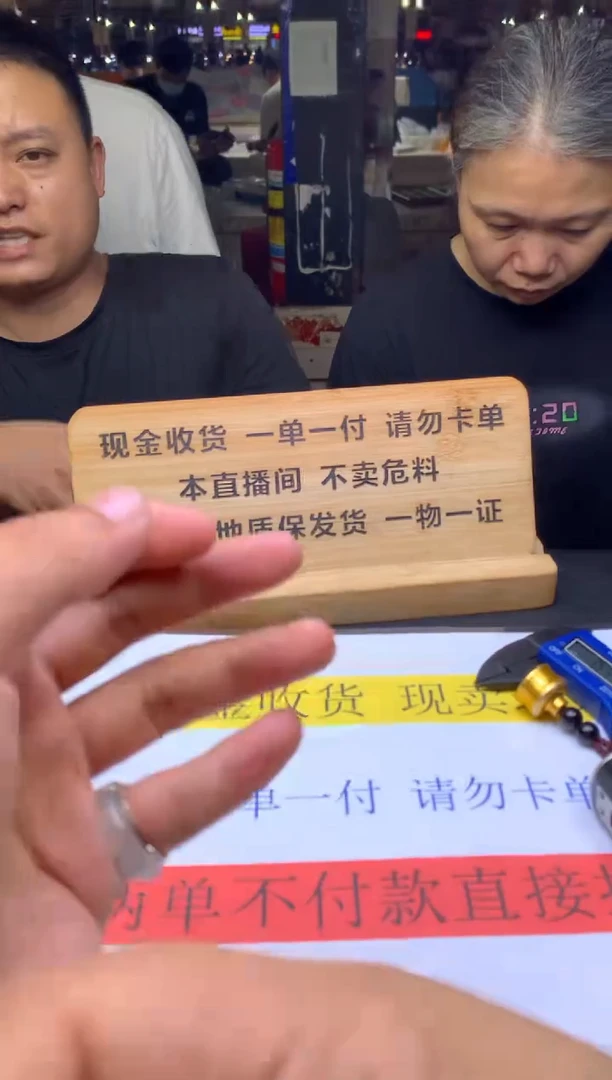 现金收货 一单一付 请勿卡单
本直播间 不卖危料
地质保发货 一物一证
:20
金收货 现卖
单一付 请勿卡单
两单不付款直接